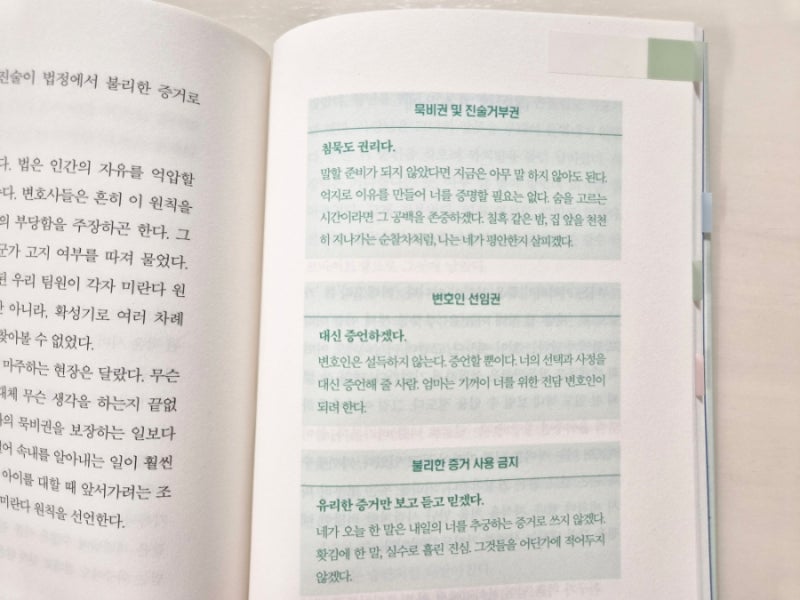 진술이 법정에서 불리한 증거로
다. 법은 인간의 자유를 억압할
다. 변호사들은 흔히 이 원칙을
의 부당함을 주장하곤 한다. 그
군가 고지 여부를 따져 물었다.
된 우리 팀원이 각자 미란다 원
아니라, 확성기로 여러 차례
찾아볼 수 없었다.
마주하는 현장은 달랐다. 무슨
대체 무슨 생각을 하는지 끝없
의 묵비권을 보장하는 일보다
속내를 알아내는 일이 훨씬
아이를 대할 때 앞서가려는 조
미란다 원칙을 선언한다.
묵비권 및 진술거부권
침묵도 권리다.
말할 준비가 되지 않았다면 지금은 아무 말 하지 않아도 된다.
억지로 이유를 만들어 너를 증명할 필요는 없다. 숨을 고르는
시간이라면 그 공백을 존중하겠다. 칠흑 같은 밤, 집 앞을 천천
히 지나가는 순찰차처럼, 나는 네가 평안한지 살피겠다.
변호인 선임권
대신 증언하겠다.
변호인은 설득하지 않는다. 증언할 뿐이다. 너의 선택과 사정을
대신 증언해 줄 사람. 엄마는 기꺼이 너를 위한 전담 변호인이
되려 한다.
불리한 증거 사용 금지
유리한 증거만 보고 듣고 믿겠다.
네가 오늘 한 말은 내일의 너를 추궁하는 증거로 쓰지 않겠다.
홧김에 한 말, 실수로 흘린 진심. 그것들을 어딘가에 적어두지
않겠다.